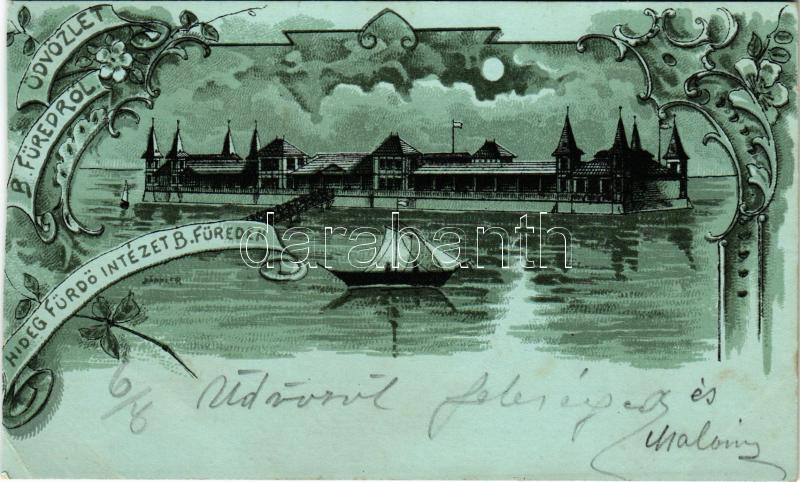 ÜDVÖZLET
B. FÜREDRŐL.
HIDEG FÜRDŐ INTÉZET B. FÜREDEN
darabanth
6/8
Üdvözöl feleséged és